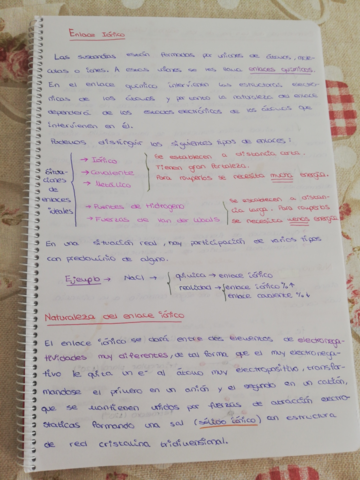 Enlace Iónico
Las sustancias están formadas por uniones de átomos, molé-
culas o iones. A estas uniones se les llama enlaces químicos.
En el enlace químico intervienen las estructuras electró-
nicas de los átomos y por tanto la naturaleza del enlace
dependerá de los electrónicos de los átomos que
intervienen en él.
Podemos distinguir los siguientes tipos de enlaces:
→ Iónico
→ Covalente
→ Metálico
Se establecen a distancia corta.
Tienen gran fortaleza.
Para romperlos se necesita mucha energía
de
enlaces
ideales
→ Puentes de Hidrógeno
→ Fuerzas de Van der Waals
Se establecen a distan-
cia larga. Para romperlos
se necesita menos energía
En una situación real, hay participación de varios tipos
con predominio de alguno.
Ejemplo → NaCl → química → enlace iónico
realidad → enlace iónico %↑
enlace covalente %↓
Naturaleza del enlace iónico
El enlace iónico se dará entre dos elementos de electrone-
gatividades muy diferentes, de tal forma que el muy electronega-
tivo le quita un e⁻ al átomo muy electropositivo, transfor-
mándose el primero en un anión y el segundo en un catión,
que se mantienen unidos por fuerzas de atracción electros-
táticas formando una sal (sólido iónico) en estructura
de red cristalina tridimensional.